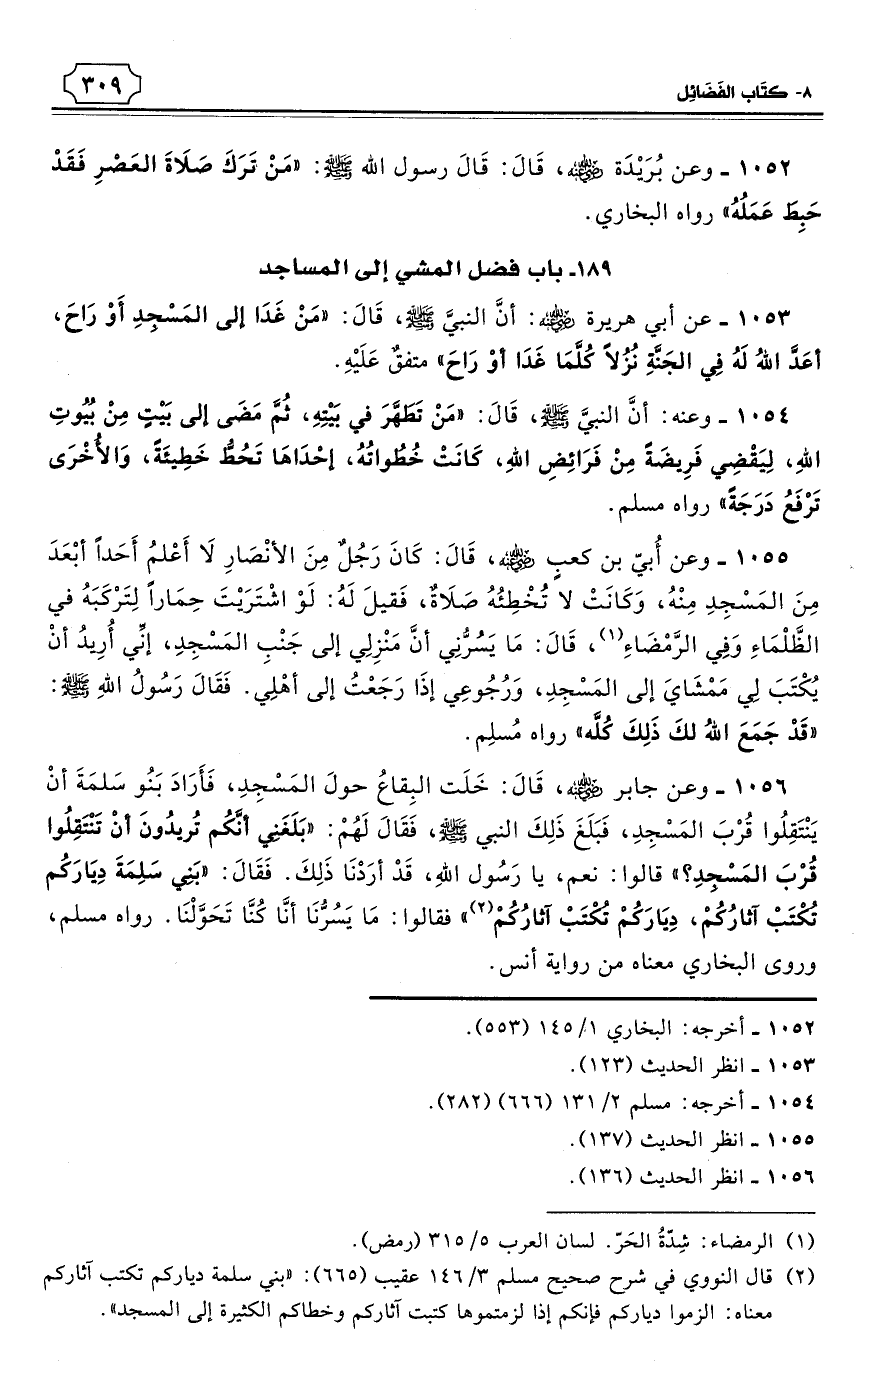 ٨- كتَاب الفَضَائِل
٣٠٩
١٠٥٢ ـ وعن بُرَيْدَة رضي الله عنه، قَالَ: قَالَ رسول الله ﷺ: «مَنْ تَرَكَ صَلَاةَ العَصْرِ فَقَدْ
حَبِطَ عَمَلُهُ» رواه البخاري.
١٨٩ـ باب فضل المشي إلى المساجد
١٠٥٣ ـ عن أبي هريرة رضي الله عنه: أنَّ النبيَّ ﷺ، قَالَ: «مَنْ غَدَا إلى المَسْجِدِ أَوْ رَاحَ،
أعَدَّ اللهُ لَهُ فِي الجَنَّةِ نُزُلاً كُلَّمَا غَدَا أوْ رَاحَ» متفقٌ عَلَيْهِ.
١٠٥٤ ـ وعنه: أنَّ النبيَّ ﷺ، قَالَ: «مَنْ تَطَهَّرَ في بَيْتِهِ، ثُمَّ مَضَى إلى بَيْتٍ مِنْ بُيُوتِ
اللهِ، لِيَقْضِي فَرِيضَةً مِنْ فَرَائِضِ اللهِ، كَانَتْ خُطُواتُهُ، إحْدَاهَا تَحُطُّ خَطِيئَةً، وَالأُخْرَى
تَرْفَعُ دَرَجَةً» رواه مسلم.
١٠٥٥ ـ وعن أُبيّ بن كعبٍ رضي الله عنه، قَالَ: كَانَ رَجُلٌ مِنَ الأنْصَارِ لَا أَعْلمُ أَحَداً أبْعَدَ
مِنَ المَسْجِدِ مِنْهُ، وَكَانَتْ لا تُخْطِئُهُ صَلَاةٌ، فَقيلَ لَهُ: لَوْ اشْتَرَيْتَ حِمَاراً لِتَرْكَبَهُ في
الظَّلْمَاءِ وَفِي الرَّمْضَاءِ(١)، قَالَ: مَا يَسُرُّنِي أنَّ مَنْزِلِي إلى جَنْبِ المَسْجِدِ، إنِّي أُرِيدُ أنْ
يُكْتَبَ لِي مَمْشَايَ إلى المَسْجِدِ، وَرُجُوعِي إذَا رَجَعْتُ إلى أهْلِي. فَقَالَ رَسُولُ اللهِ ﷺ:
«قَدْ جَمَعَ اللهُ لكَ ذَلِكَ كُلَّه» رواه مُسلِم.
١٠٥٦ ـ وعن جابر رضي الله عنه، قَالَ: خَلَت البِقاعُ حولَ المَسْجِدِ، فَأَرَادَ بَنُو سَلمَةَ أنْ
يَنْتَقِلُوا قُرْبَ المَسْجِدِ، فَبَلَغَ ذَلِكَ النبي ﷺ، فَقَالَ لَهُمْ: «بَلَغَنِي أنَّكُم تُريدُونَ أنْ تَنْتَقِلُوا
قُرْبَ المَسْجِدِ؟» قالوا: نعم، يا رَسُول اللهِ، قَدْ أرَدْنَا ذَلِكَ. فَقَالَ: «بَنِي سَلِمَةَ دِيَارَكُم
تُكْتَبْ آثارُكُمْ، دِيَارَكُمْ تُكْتَبْ آثارُكُمْ(٢)» فقالوا: مَا يَسُرُّنَا أنَّا كُنَّا تَحَوَّلْنَا. رواه مسلم،
وروى البخاري معناه من رواية أنس.
١٠٥٢ ـ أخرجه: البخاري ١٤٥/١ (٥٥٣).
١٠٥٣ ـ انظر الحديث (١٢٣).
١٠٥٤ ـ أخرجه: مسلم ١٣١/٢ (٦٦٦) (٢٨٢).
١٠٥٥ ـ انظر الحديث (١٣٧).
١٠٥٦ ـ انظر الحديث (١٣٦).
(١) الرمضاء: شِدَّةُ الحَرّ. لسان العرب ٣١٥/٥ (رمض).
(٢) قال النووي في شرح صحيح مسلم ١٤٦/٣ عقيب (٦٦٥): «بني سلمة دياركم تكتب آثاركم
معناه: الزموا دياركم فإنكم إذا لزمتموها كتبت آثاركم وخطاكم الكثيرة إلى المسجد».